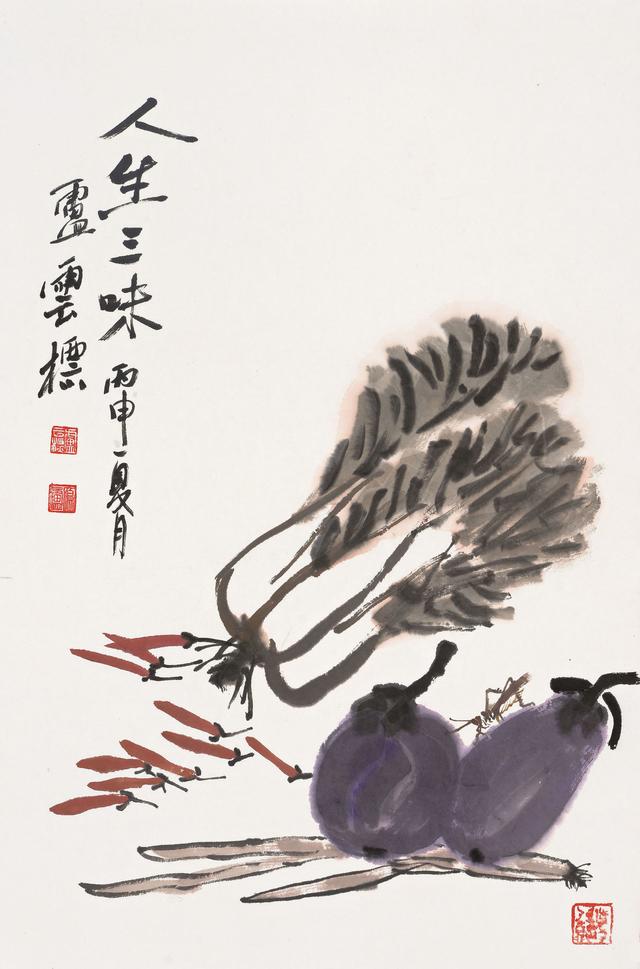 人生三味 丙申夏月
盧雲標